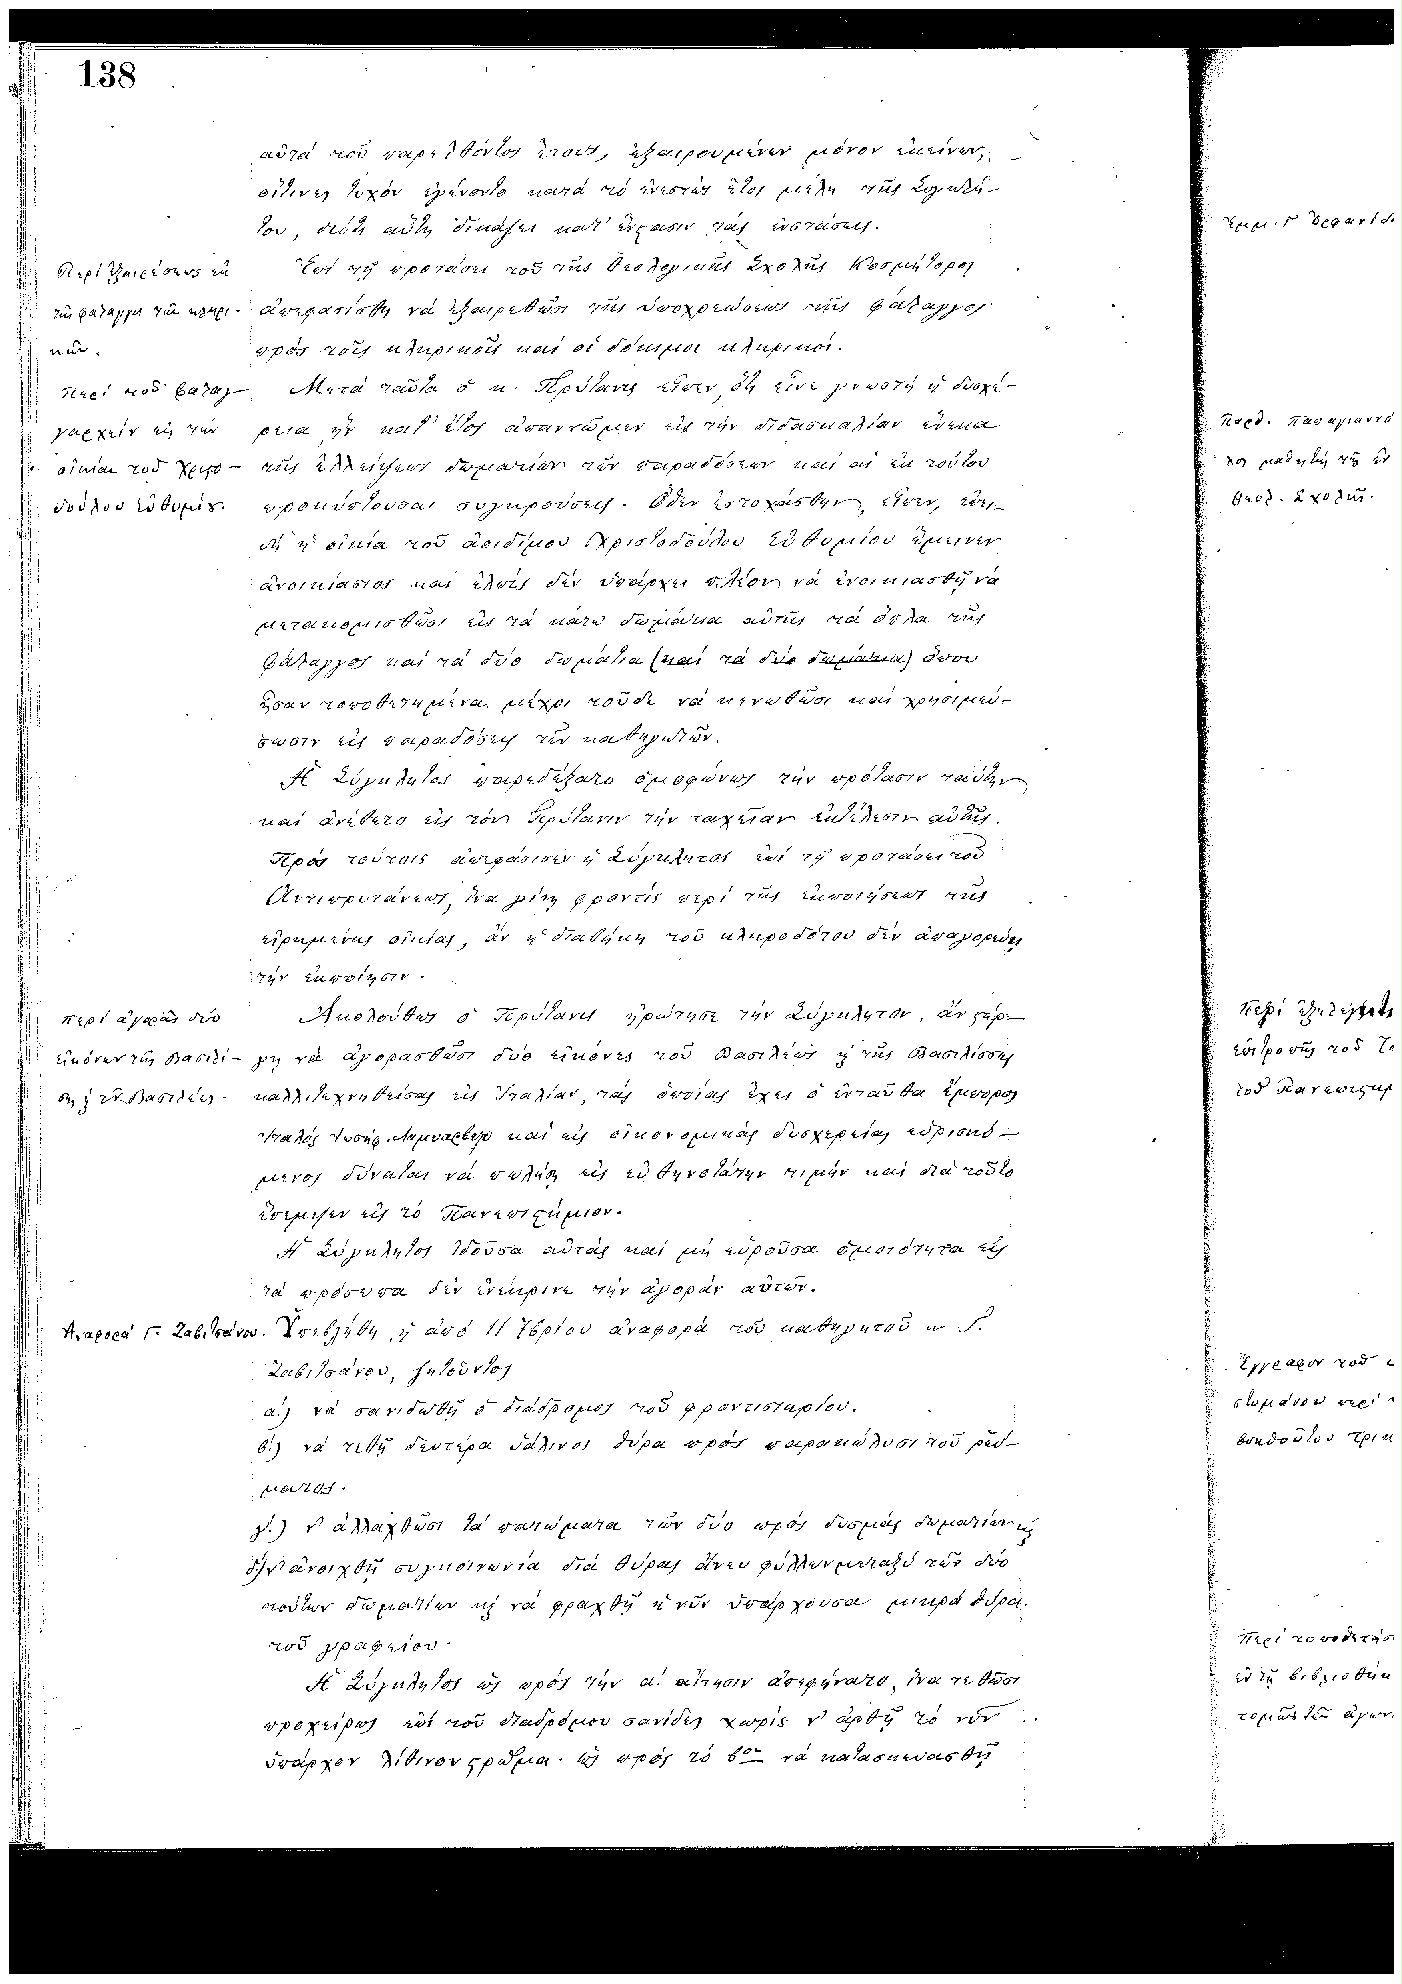 138
αὐτά τοῦ παρελθόντος ἔτους, ἐξαιρουμένων μόνον ἐκείνων,
οἵτινες τυχόν ἐγένοντο κατά τό ἐνεστώς ἔτος μέλη τῆς Συγκλή-
του, διότι αὕτη δικάζει κατ' ἔνστασιν τάς ἐνστάσεις.
Περί ἐξαιρέσεως ἐκ
τῆς φάλαγγος τῶν κληρι-
κῶν.
Ἐπί τῇ προτάσει τοῦ τῆς Θεολογικῆς Σχολῆς Κοσμήτορος
ἀπεφασίσθη νά ἐξαιρεθῶσι τῆς ὑποχρεώσεως τῆς φάλαγγος
πρός τοῖς κληρικοῖς καί οἱ δόκιμοι κληρικοί.
Περί τοῦ φαλαγ-
γαρχεῖν εἰς τήν
οἰκίαν τοῦ Χριστο-
δούλου Εὐθυμίου.
Μετά ταῦτα ὁ κ. Πρύτανις εἶπεν, ὅτι εἶνε γνωστή ἡ δυσχέ-
ρεια ἥν κατ' ἔτος ἀπαντῶμεν εἰς τήν διδασκαλίαν ἕνεκα
τῆς ἐλλείψεως δωματίων τῶν παραδόσεων καί αἱ ἐκ τούτου
προκύπτουσαι συγκρούσεις. Ὅθεν ἐστοχάσθην, εἶπεν, ἐπει-
δή ἡ οἰκία τοῦ ἀοιδίμου Χριστοδούλου Εὐθυμίου ἔμεινεν
ἀνοικίαστος καί ἐλπίς δέν ὑπάρχει πλέον νά ἐνοικιασθῇ νά
μετακομισθῶσι εἰς τά κάτω δωμάτια αὐτῆς τά ὅπλα τῆς
φάλαγγος καί τά δύο δωμάτια (καί τά δύο δωμάτια) ὅπου
ἦσαν τοποθετημένα μέχρι τοῦδε νά κενωθῶσι καί χρησιμεύ-
σωσιν εἰς παραδόσεις τῶν καθηγητῶν.
Ἡ Σύγκλητος παρεδέξατο ὁμοφώνως τήν πρότασιν ταύτην
καί ἀνέθετο εἰς τόν Πρύτανιν τήν ταχεῖαν ἐκτέλεσιν αὐτῆς.
Πρός τούτοις ἀπεφάσισεν ἡ Σύγκλητος ἐπί τῇ προτάσει τοῦ
Ἀντιπρυτάνεως, ἵνα γίνῃ φροντίς περί τῆς ἐκποιήσεως τῆς
εἰρημένης οἰκίας, ἄν ἡ διαθήκη τοῦ κληροδότου δέν ἀπαγορεύῃ
τήν ἐκποίησιν.
Περί ἀγορᾶς δύο
εἰκόνων τῆς Βασιλί-
σης ἤ τοῦ Βασιλέως.
Ἀκολούθως ὁ Πρύτανις ἠρώτησε τήν Σύγκλητον, ἄν στέρ-
γῃ νά ἀγορασθῶσι δύο εἰκόνες τοῦ Βασιλέως ἤ τῆς Βασιλίσσης
καλλιτεχνηθείσας εἰς Ἰταλίαν, τάς ὁποίας ἔχει ὁ ἐνταῦθα ἔμπορος
Ἰταλός Ἰωσήφ καί εἰς οἰκονομικάς δυσχερείας εὑρισκό-
μενος δύναται νά πωλήσῃ εἰς εὐθηνοτάτην τιμήν καί διά τοῦτο
ἔπεμψεν εἰς τό Πανεπιστήμιον.
Ἡ Σύγκλητος ἰδοῦσα αὐτάς καί μή εὑροῦσα ὁμοιότητα εἰς
τά πρόσωπα δέν ἐνέκρινε τήν ἀγοράν αὐτῶν.
Ἀναφορά Γ. Ζαβιτσάνου.
Ὑπεβλήθη ἡ ἀπό 11 7βρίου ἀναφορά τοῦ καθηγητοῦ κ. Γ.
Ζαβιτσάνου, ζητοῦντος
α.) νά σανιδωθῇ ὁ διάδρομος τοῦ φροντιστηρίου.
β.) νά τεθῇ δευτέρα ὑάλινος θύρα πρός παρακώλυσι τοῦ ρεύ-
ματος.
γ.) ν' ἀλλαχθῶσι τά πατώματα τῶν δύο πρός δυσμάς δωματίων κ
δ.) ν' ἀνοιχθῇ συγκοινωνία διά θύρας ἄνευ φύλλων μεταξύ τῶν δύο
τούτων δωματίων κ νά φραχθῇ ἡ νῦν ὑπάρχουσα μικρά θύρα
τοῦ γραφείου.
Ἡ Σύγκλητος ὡς πρός τήν α. αἴτησιν ἀπεφήνατο, ἵνα τεθῶσι
προχείρως ἐπί τοῦ διαδρόμου σανίδες χωρίς ν' ἀρθῇ τό νῦν
ὑπάρχον λίθινον στρῶμα. ὡς πρός τό βον νά κατασκευασθῇ
Θεολ. Σχολῆς.
ἐπιτροπῆς τοῦ
Ἔγγραφον τοῦ
ἐν τῇ βιβλιοθήκ